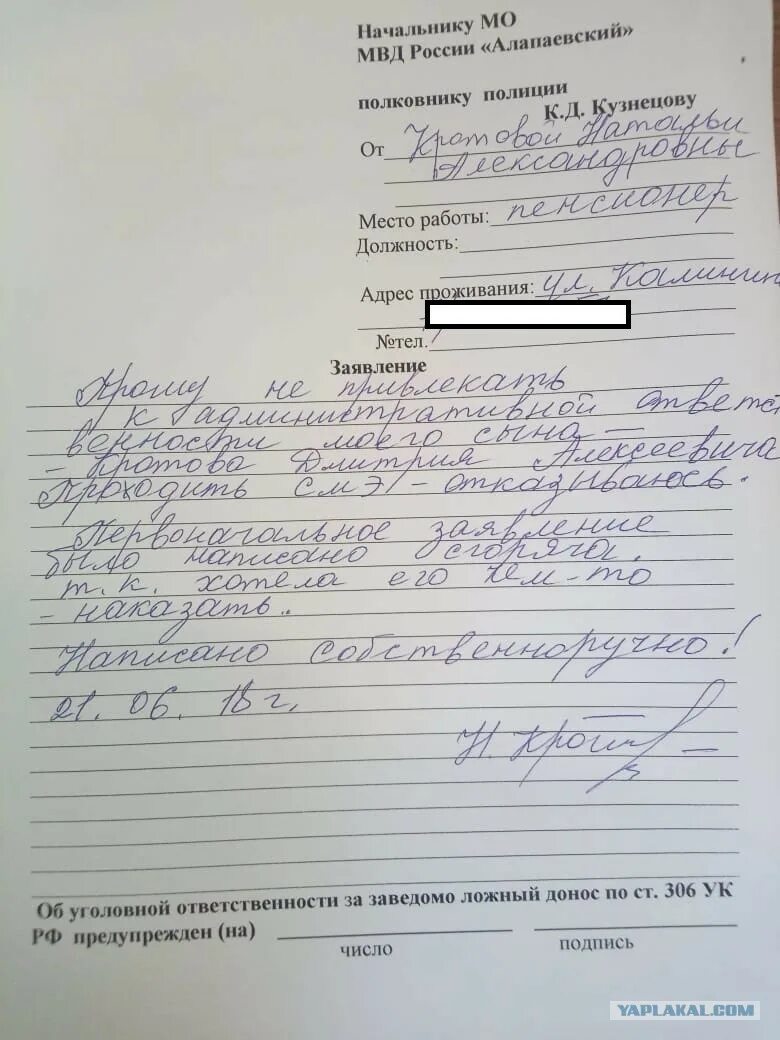 Начальнику МО
МВД России «Алапаевский»
полковнику полиции
К.Д. Кузнецову
От Кротовой Натальи
Александровны
Место работы: пенсионер
Должность:
Адрес проживания: ул. Калинин
№тел.
Заявление
Прошу не привлекать
к административной ответст
венности моего сына –
- Кротова Дмитрия Алексеевича
Проходить СМЭ – отказываюсь.
Первоначальное заявление
было написано сгоряча,
т.к. хотела его чем-то
- наказать..
Написано собственноручно!
21. 06. 18 г.
Н. Кротова
Об уголовной ответственности за заведомо ложный донос по ст. 306 УК
РФ предупрежден (на)
число подпись
YAPLAKAL.COM